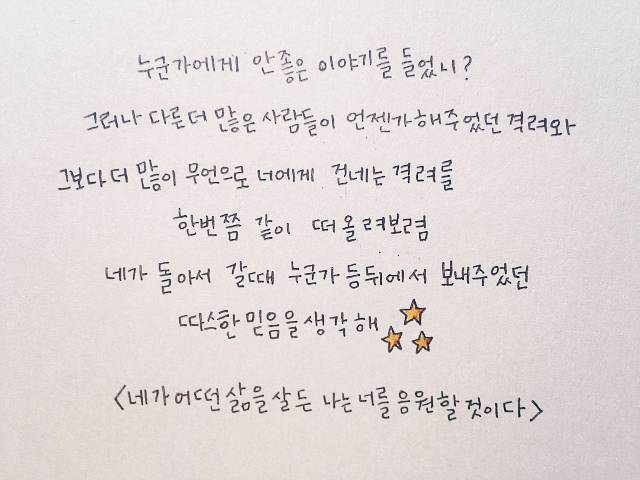 누군가에게 안 좋은 이야기를 들었니?
그러나 다른 더 많은 사람들이 언젠가 해주었던 격려와
그보다 더 많이 무언으로 너에게 건네는 격려를
한번쯤 같이 떠올려보렴
네가 돌아서 갈때 누군가 등뒤에서 보내주었던
따스한 믿음을 생각해
<네가 어떤 삶을 살든 나는 너를 응원할 것이다>